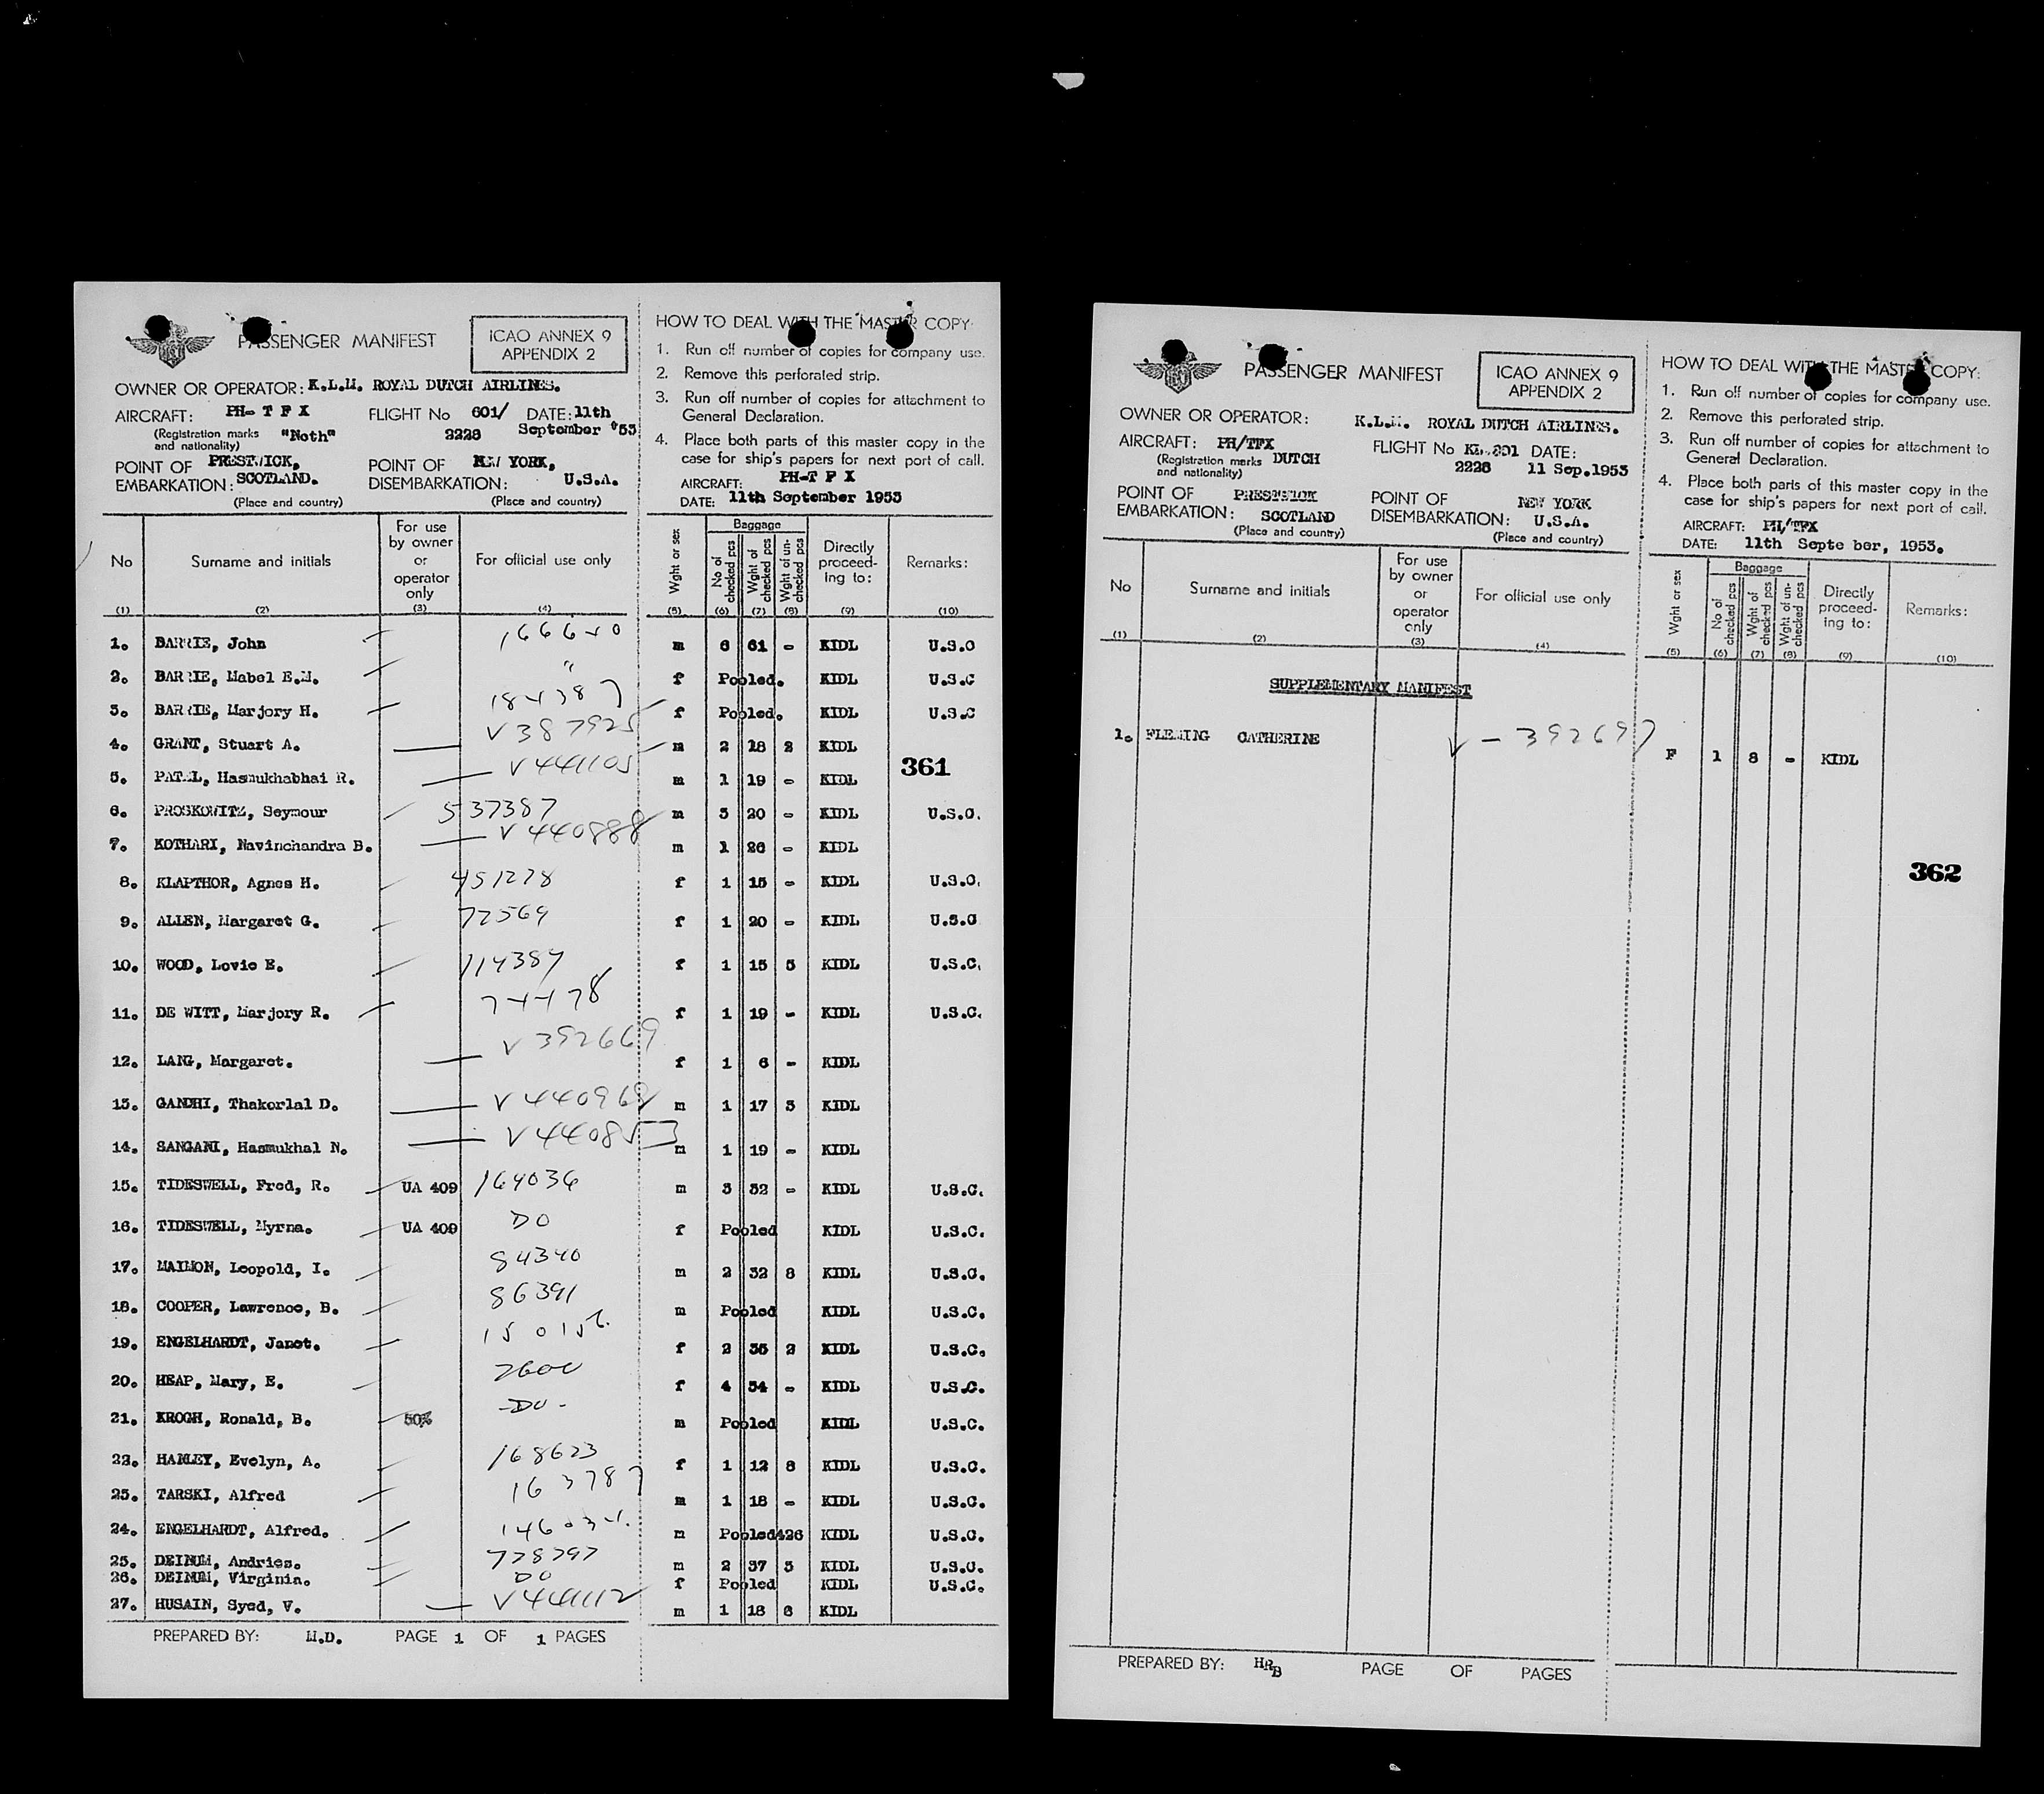 PASSENGER MANIFEST
ICAO ANNEX 9
APPENDIX 2
OWNER OR OPERATOR: K.L.M. ROYAL DUTCH AIRLINES.
AIRCRAFT: PH- T F X FLIGHT No 601/ DATE: 11th
(Registration marks and nationality) "Noth" 2228 September '53
POINT OF EMBARKATION: PRESTWICK, SCOTLAND. POINT OF DISEMBARKATION: NEW YORK, U.S.A.
(Place and country) (Place and country)
HOW TO DEAL WITH THE MASTER COPY:
1. Run off number of copies for company use.
2. Remove this perforated strip.
3. Run off number of copies for attachment to
General Declaration.
4. Place both parts of this master copy in the
case for ship's papers for next port of call.
AIRCRAFT: PH-T F X
DATE: 11th September 1953
No Surname and initials For use by owner or operator only For official use only Wght or sex Baggage No of checked pcs Wght of checked pcs Wght of un-checked pcs Directly proceed-ing to: Remarks:
(1) (2) (3) (4) (5) (6) (7) (8) (9) (10)
1. BARRIE, John m 6 61 - KIDL U.S.C
2. BARRIE, Mabel E.M. " f Pooled. KIDL U.S.C
3. BARRIE, Marjory H. f Pooled. KIDL U.S.C
4. GRANT, Stuart A. V 387925 m 2 18 2 KIDL
361
5. PATEL, Hasmukhabhai R. V 441105 m 1 19 - KIDL
6. PROSKOWITZ, Seymour 537387 m 3 20 - KIDL U.S.C.
7. KOTHARI, Navinchandra B. V 440888 m 1 26 - KIDL
8. KLAPTHOR, Agnes H. 451278 f 1 15 - KIDL U.S.C.
9. ALLEN, Margaret G. 72569 f 1 20 - KIDL U.S.C
10. WOOD, Lovie E. 114387 f 1 15 5 KIDL U.S.C.
11. DE WITT, Marjory R. f 1 19 - KIDL U.S.C.
12. LANG, Margaret. V 392669 f 1 6 - KIDL
13. GANDHI, Thakorlal D. V 440968 m 1 17 3 KIDL
14. SANGANI, Hasmukhal N. m 1 19 - KIDL
15. TIDESWELL, Fred, R. UA 409 164036 m 3 32 - KIDL U.S.C.
16. TIDESWELL, Myrna. UA 409 DO f Pooled KIDL U.S.C.
17. MAIMON, Leopold, I. 84340 m 2 32 8 KIDL U.S.C.
18. COOPER, Lawrence, B. 86391 m Pooled KIDL U.S.C.
19. ENGELHARDT, Janet. f 2 35 2 KIDL U.S.C.
20. HEAP, Mary, E. 2600 f 4 54 - KIDL U.S.C.
21. KROGH, Ronald, B. 50% -DO- m Pooled KIDL U.S.C.
22. HANLEY, Evelyn, A. 168623 f 1 12 8 KIDL U.S.C.
23. TARSKI, Alfred 163787 m 1 18 - KIDL U.S.C.
24. ENGELHARDT, Alfred. m Pooled KIDL U.S.C.
25. DEINUM, Andries. 778797 m 2 37 3 KIDL U.S.C.
26. DEINUM, Virginia. DO f Pooled KIDL U.S.C.
27. HUSAIN, Syed, V. V 441112 m 1 18 6 KIDL
PREPARED BY: M.D. PAGE 1 OF 1 PAGES
PASSENGER MANIFEST
ICAO ANNEX 9
APPENDIX 2
OWNER OR OPERATOR: K.L.M. ROYAL DUTCH AIRLINES.
AIRCRAFT: PH/TFX FLIGHT No DATE:
(Registration marks and nationality) DUTCH 2228 11 Sep.1953
POINT OF EMBARKATION: PRESTWICK SCOTLAND POINT OF DISEMBARKATION: NEW YORK U.S.A.
(Place and country) (Place and country)
HOW TO DEAL WITH THE MASTER COPY:
1. Run off number of copies for company use.
2. Remove this perforated strip.
3. Run off number of copies for attachment to
General Declaration.
4. Place both parts of this master copy in the
case for ship's papers for next port of call.
AIRCRAFT: PH/TFX
DATE: 11th Septe ber, 1953.
No Surname and initials For use by owner or operator only For official use only Wght or sex Baggage No of checked pcs Wght of checked pcs Wght of un-checked pcs Directly proceed-ing to: Remarks:
(1) (2) (3) (4) (5) (6) (7) (8) (9) (10)
SUPPLEMENTARY MANIFEST
1. FLEMING CATHERINE V - 392697 F 1 8 - KIDL
362
PREPARED BY: HRB PAGE OF PAGES